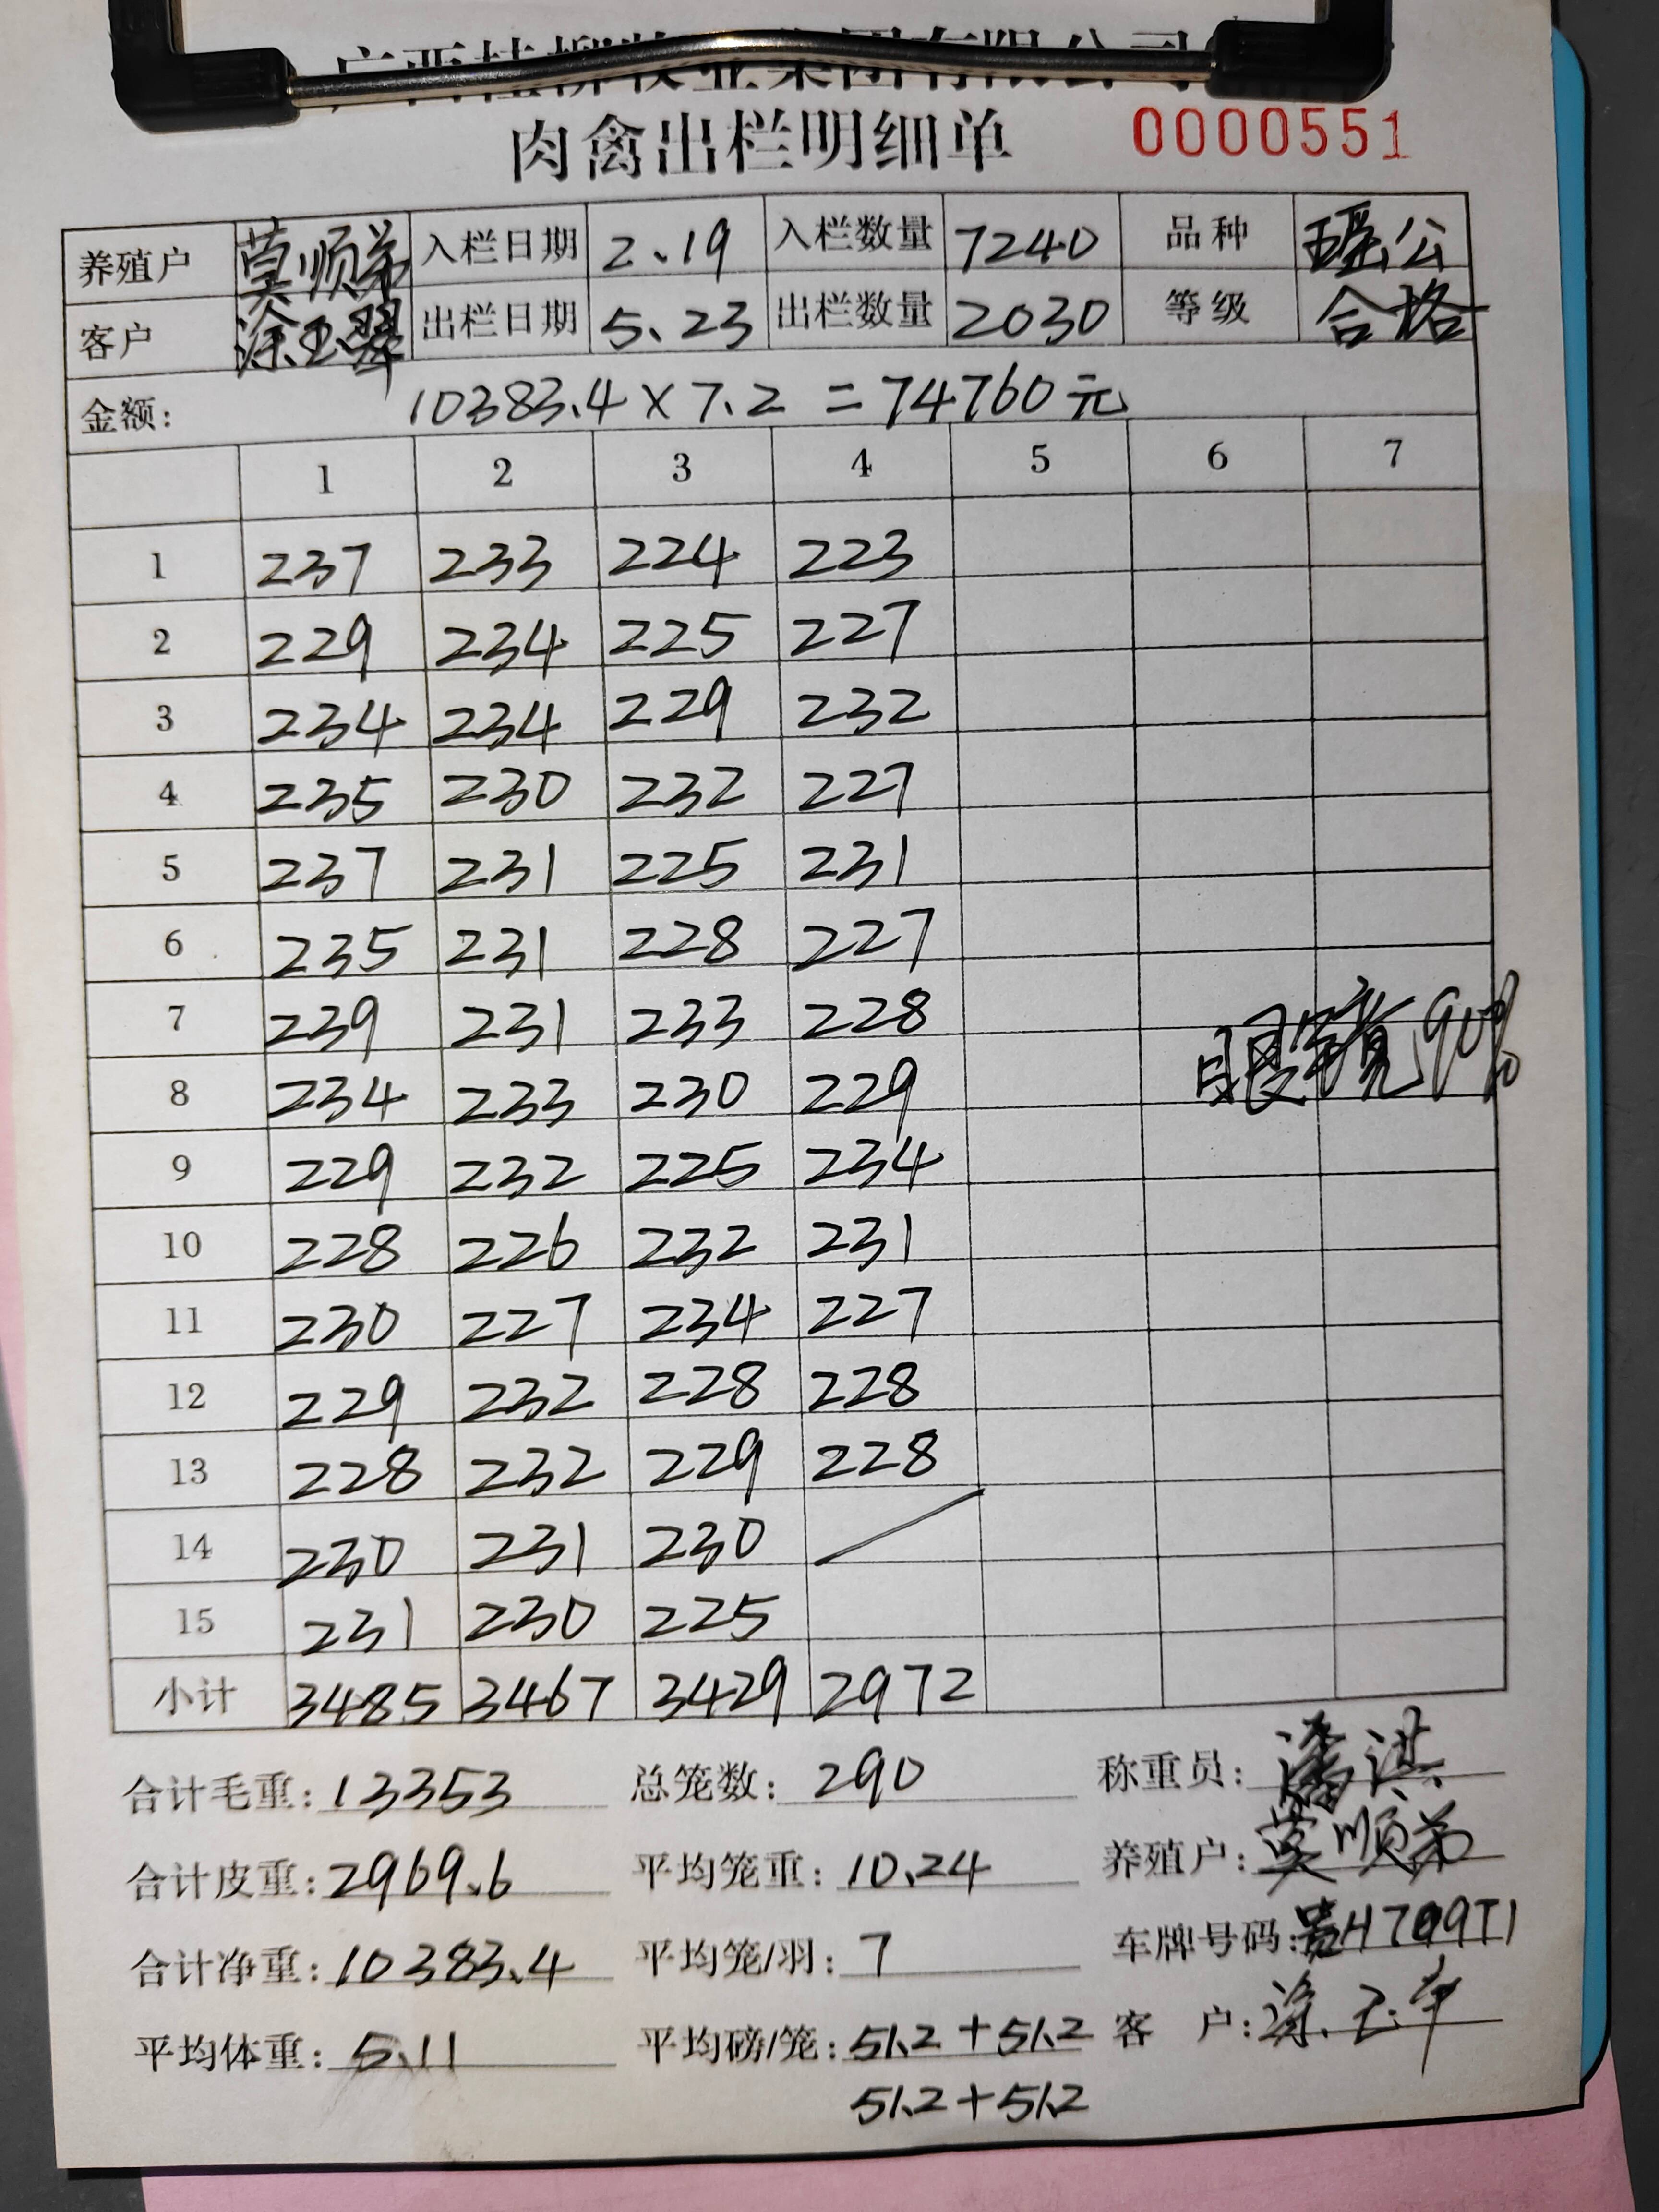 广西桂柳牧业集团有限公司
肉禽出栏明细单 0000551
养殖户 莫顺弟 入栏日期 2、19 入栏数量 7240 品种 瑶公
客户 涂玉翠 出栏日期 5、23 出栏数量 2030 等级 合格
金额: 10383.4×7.2=74760元
1 2 3 4 5 6 7
1 237 233 224 223
2 229 234 225 227
3 234 234 229 232
4 235 230 232 227
5 237 231 225 231
6 235 231 228 227
7 239 231 233 228
8 234 233 230 229
眼亮90%
9 229 232 225 234
10 228 226 232 231
11 230 227 234 227
12 229 232 228 228
13 228 232 229 228
14 230 231 230
15 231 230 225
小计 3485 3467 3429 2972
合计毛重:13353 总笼数:290 称重员:潘淇
合计皮重:2969.6 平均笼重:10.24 养殖户:莫顺弟
合计净重:10383.4 平均笼/羽:7 车牌号码:贵H709T1
平均体重:5.11 平均磅/笼:51.2+51.2 客 户:涂
51.2+51.2